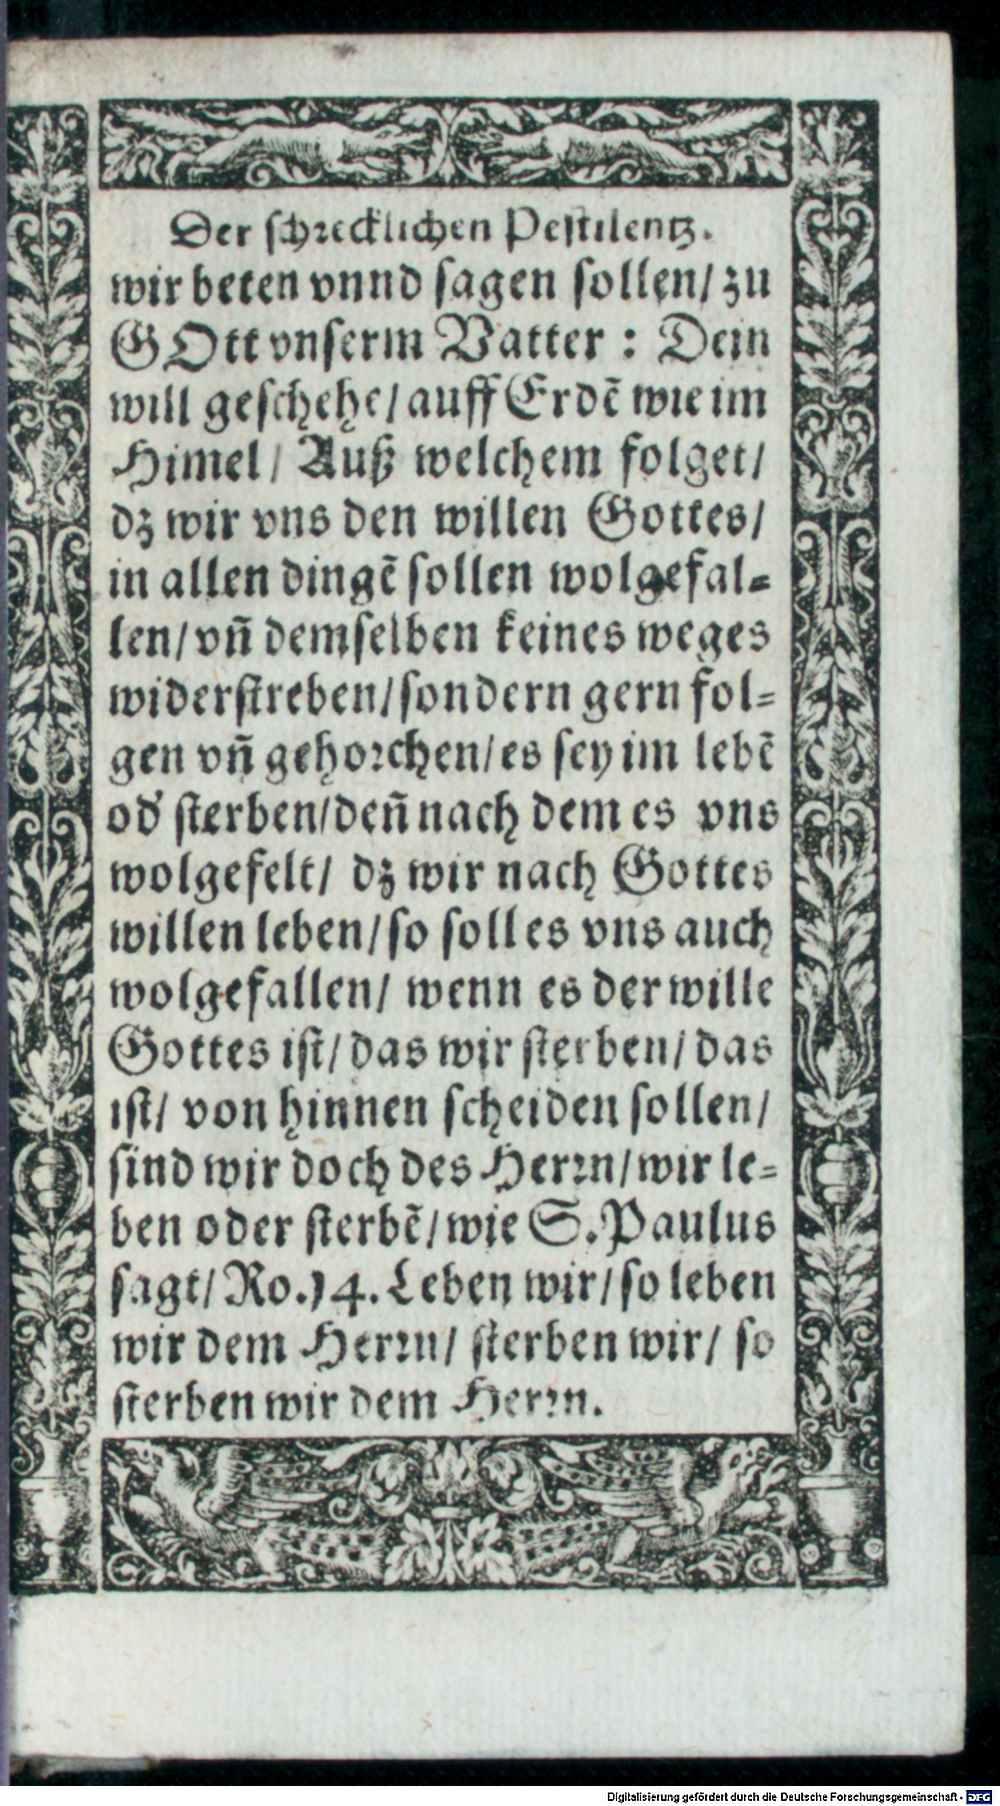 Der schrecklichen Pestilentz.
wir beten vnnd sagen sollen/ zu
GOtt vnserm Vatter : Dein
will geschehe/ auff Erdẽ wie im
Himel/ Auß welchem folget/
dz wir vns den willen Gottes/
in allen dingẽ sollen wolgefal=
len/ vñ demselben keines weges
widerstreben/ sondern gern fol=
gen vñ gehorchen/ es sey im lebẽ
od' sterben/ deñ nach dem es vns
wolgefelt/ dz wir nach Gottes
willen leben/ so soll es vns auch
wolgefallen/ wenn es der wille
Gottes ist/ das wir sterben/ das
ist/ von hinnen scheiden sollen/
sind wir doch des Herrn/ wir le=
ben oder sterbẽ/ wie S. Paulus
sagt/ Ro. 14. Leben wir/ so leben
wir dem Herrn/ sterben wir/ so
sterben wir dem Herrn.
Digitalisierung gefördert durch die Deutsche Forschungsgemeinschaft - DFG